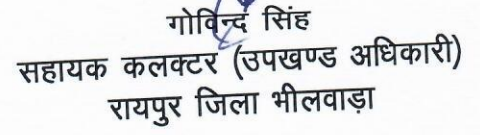 गोविन्द सिंह
सहायक कलक्टर (उपखण्ड अधिकारी)
रायपुर जिला भीलवाड़ा